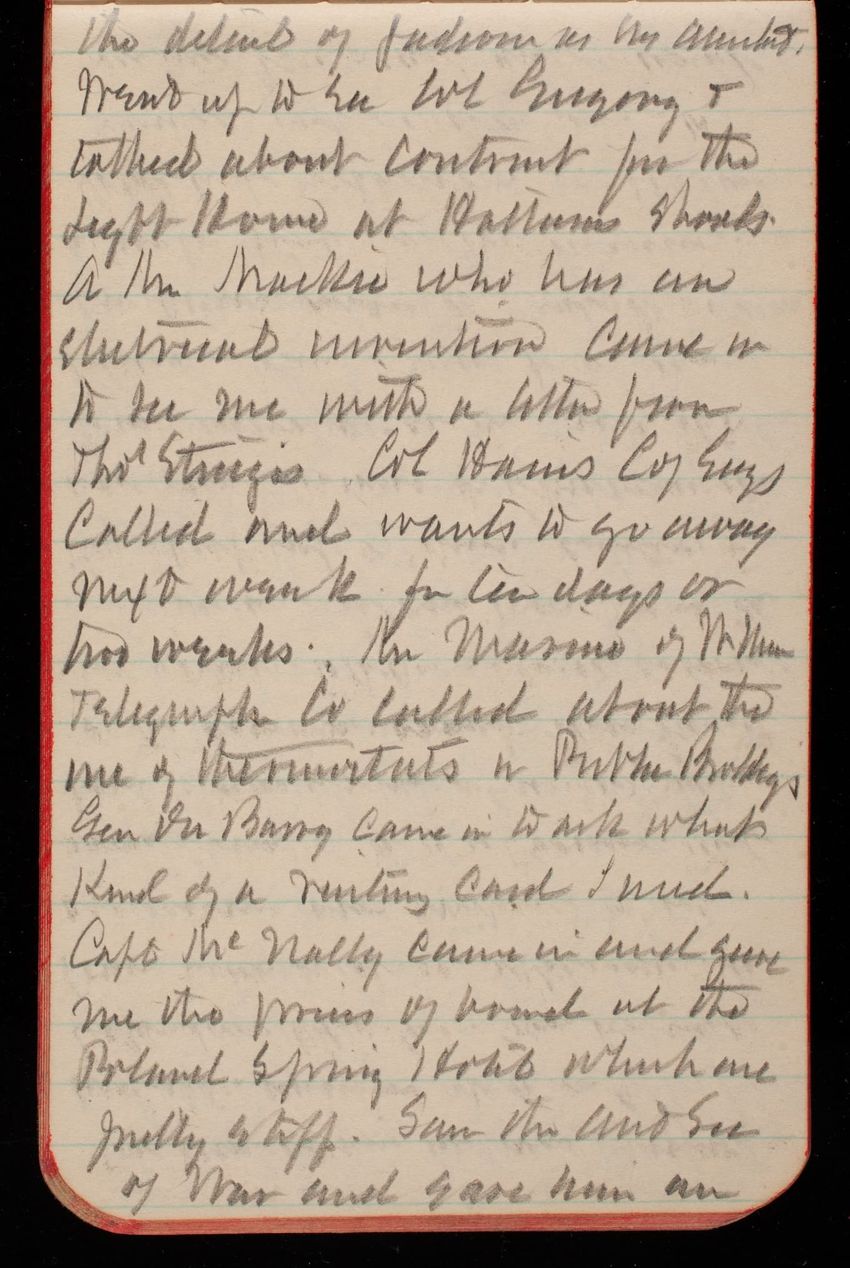 the detail of Judson as my assistant.
Went up to see Col Gregory &
talked about Contract for the
Light House at Hatteras Shoals.
A Mr Mackie who has an
Electrical invention Came in
to see me with a letter from
Thos Sturgis. Col Hains C of Engs
Called and wants to go away
next week for ten days or
two weeks. Mr Marine of W Union
Telegraph Co called about the
use of thermostats in Public Buildings
Gen Du Barry came in to ask what
Kind of a visiting Card I used.
Capt McNally came in and gave
me the prices of board at the
Poland Spring Hotel which are
pretty stiff. Saw the Asst Sec
of War and gave him an